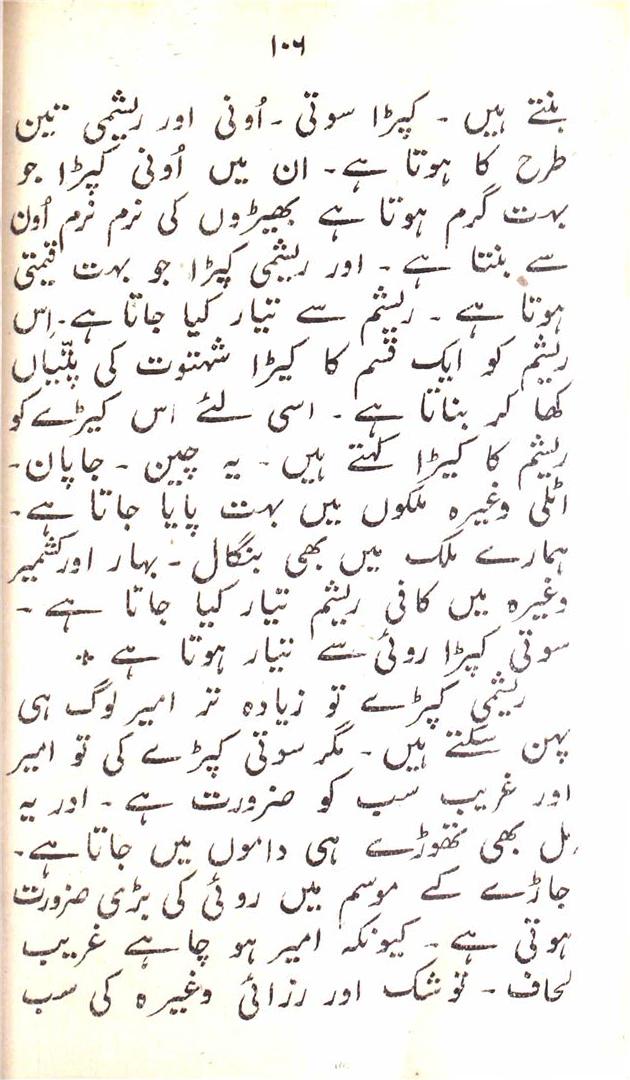 ۱۰۶
بنتے ہیں ۔ کپڑا سوتی ۔ اُونی اور ریشمی تین
طرح کا ہوتا ہے۔ ان میں اُونی کپڑا جو
بہت گرم ہوتا ہے بھیڑوں کی نرم نرم اُون
سے بنتا ہے ۔ اور ریشمی کپڑا جو بہت قیمتی
ہوتا ہے ۔ ریشم سے تیار کیا جاتا ہے۔ اِس
ریشم کو ایک قسم کا کیڑا شہتوت کی پتّیاں
کھا کر بناتا ہے ۔ اسی لئے اس کیڑے کو
ریشم کا کیڑا کہتے ہیں ۔ یہ چین ۔ جاپان۔
اٹلی وغیرہ ملکوں میں بہت پایا جاتا ہے۔
ہمارے ملک میں بھی بنگال ۔ بہار اور کشمیر
وغیرہ میں کافی ریشم تیار کیا جاتا ہے ۔
سوتی کپڑا روئی سے تیار ہوتا ہے *
ریشمی کپڑے تو زیادہ تر امیر لوگ ہی
پہن سکتے ہیں ۔ مگر سوتی کپڑے کی تو امیر
اور غریب سب کو ضرورت ہے ۔ اور یہ
مل بھی تھوڑے ہی داموں میں جاتا ہے۔
جاڑے کے موسم میں روئی کی بڑی ضرورت
ہوتی ہے ۔ کیونکہ امیر ہو چاہے غریب
لحاف ۔ توشک اور رزائی وغیرہ کی سب